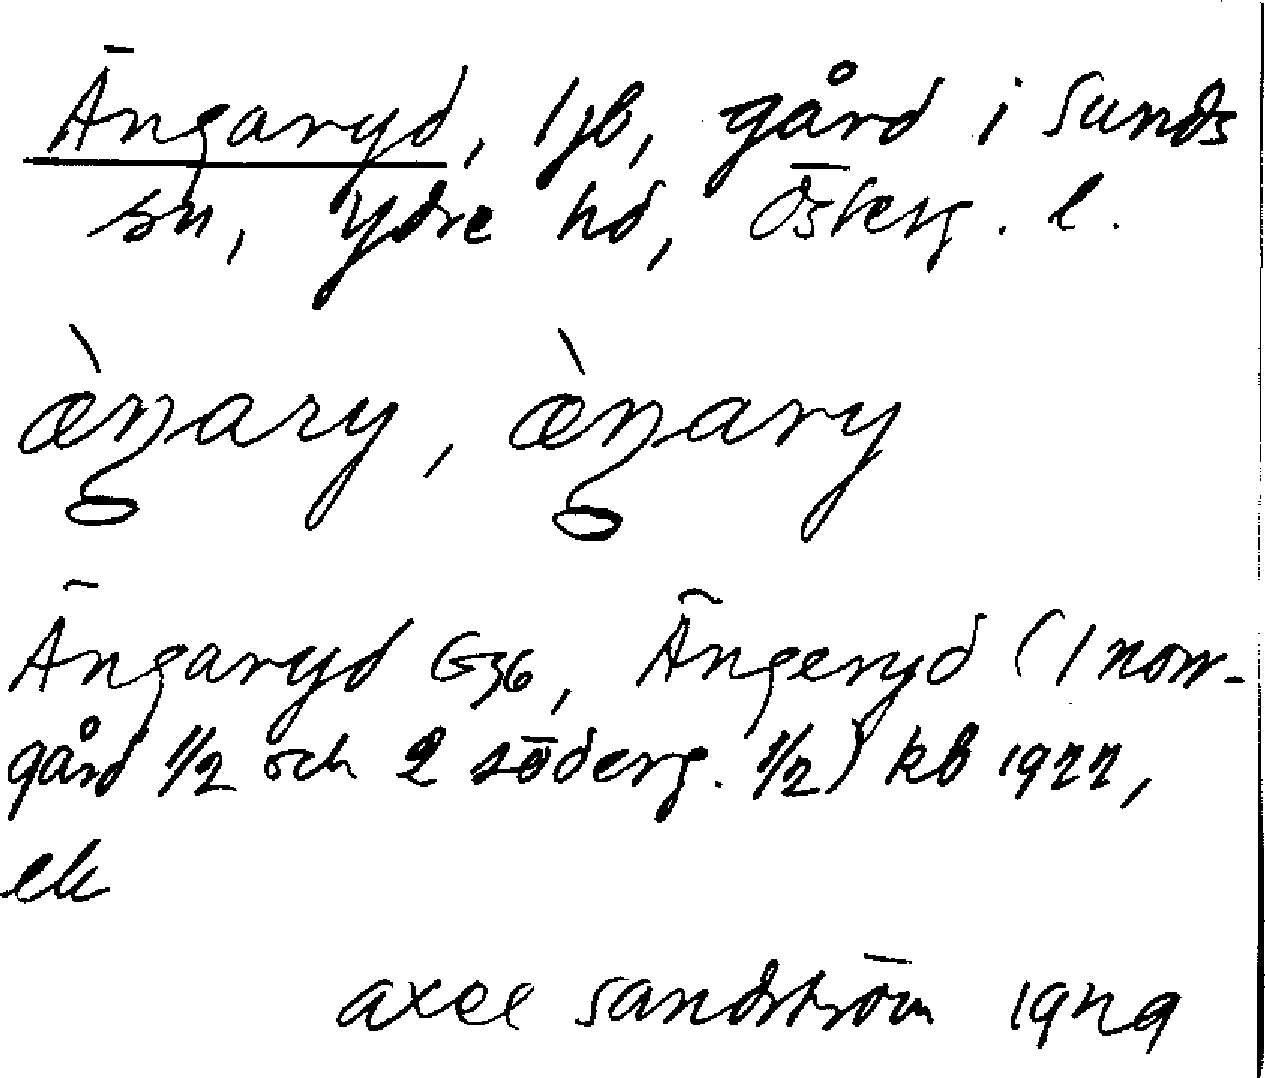 Ängaryd, ljb, gård i Sunds
sn, Ydre hd, Österg. l.
æ̀ŋary, æ̀ŋary
Ängaryd G36, Ängeryd (1 norr-
gård 1/2 och 2 söderg. 1/2) kb 1922,
ek
Axel Sandström 1929